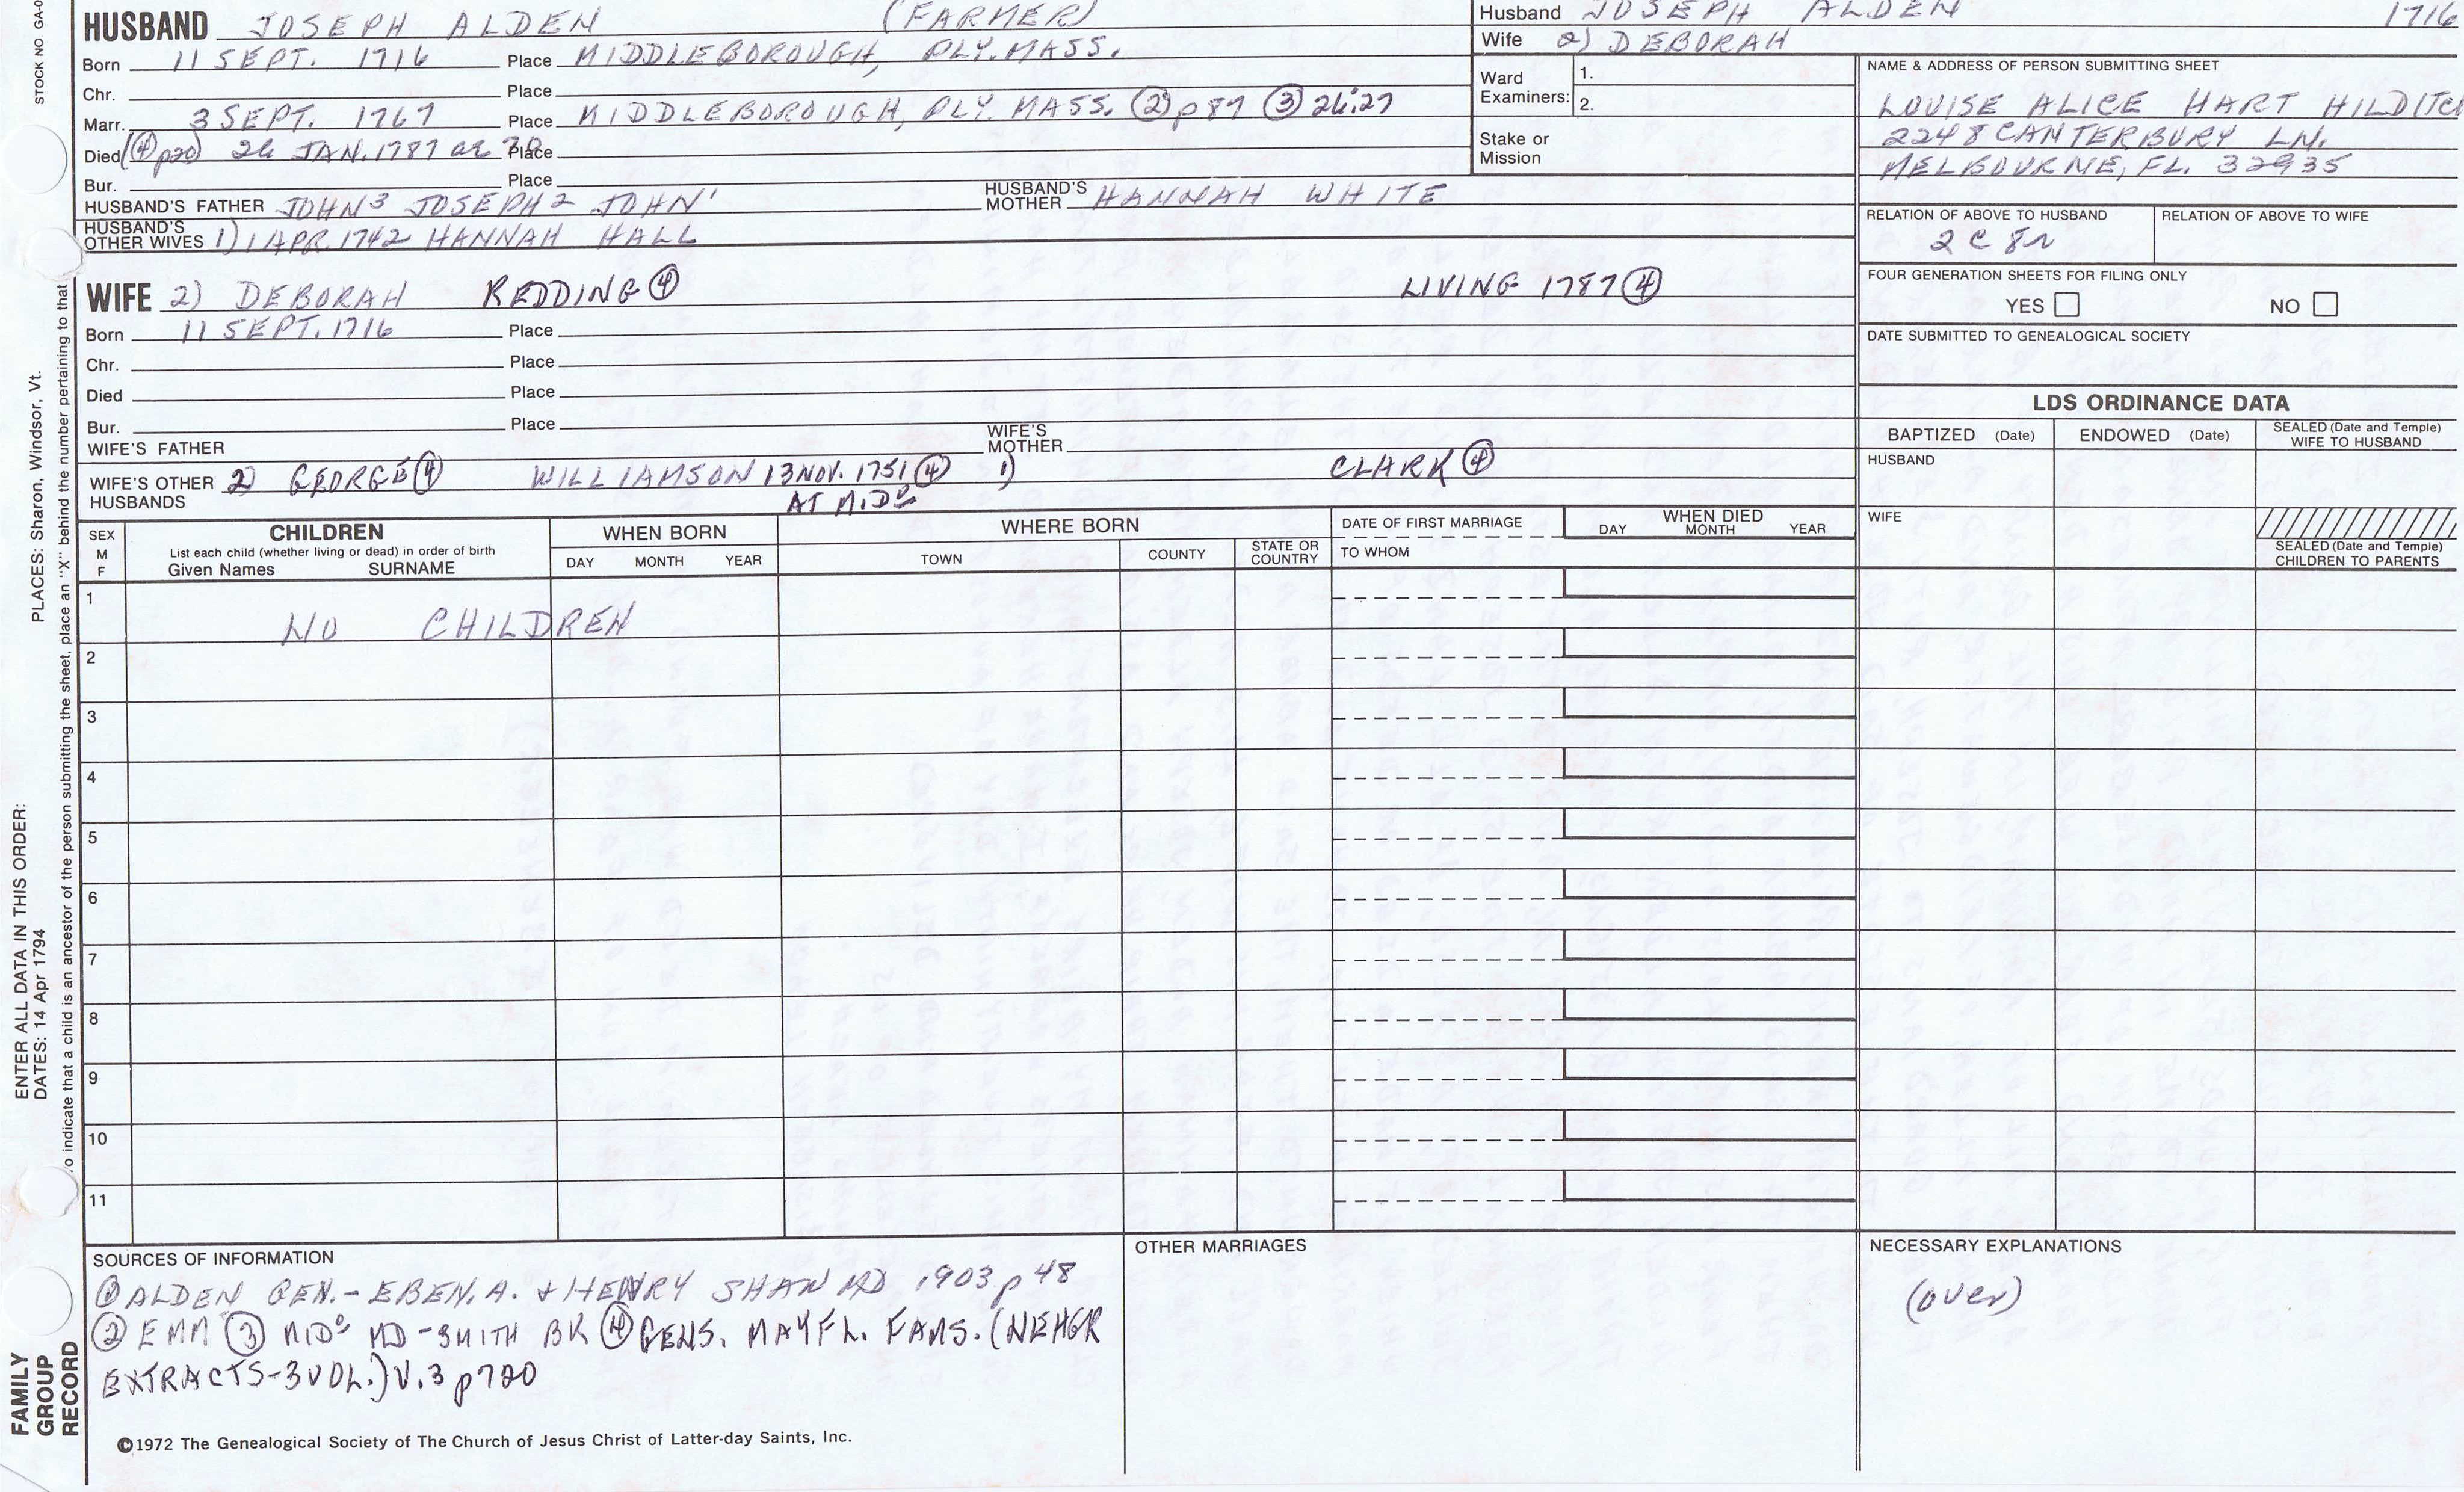 STOCK NO. GA-0
HUSBAND JOSEPH ALDEN (FARMER)
Born 11 SEPT. 1716 Place MIDDLEBOROUGH, PLY. MASS.
Chr. Place
Marr. 3 SEPT. 1767 Place MIDDLEBOROUGH, PLY. MASS. ② p87 ③ 26:27
Died (④ p20) 26 JAN. 1787 ae 70 Place
Bur. Place
HUSBAND'S FATHER JOHN³ JOSEPH² JOHN¹ HUSBAND'S MOTHER HANNAH WHITE
HUSBAND'S OTHER WIVES 1) 1 APR 1742 HANNAH HALL
WIFE 2) DEBORAH REDDING ④ LIVING 1787 ④
Born 11 SEPT. 1716 Place
Chr. Place
Died Place
Bur. Place
WIFE'S FATHER WIFE'S MOTHER
WIFE'S OTHER HUSBANDS 2) GEORGE ④ WILLIAMSON 13 NOV. 1751 ④ 1) CLARK ④
AT MIDº
Husband JOSEPH ALDEN 1716
Wife 2) DEBORAH
Ward Examiners: 1.
2.
Stake or Mission
NAME & ADDRESS OF PERSON SUBMITTING SHEET
LOUISE ALICE HART
2248 CANTERBURY LN.
MELBOURNE, FL. 32935
RELATION OF ABOVE TO HUSBAND RELATION OF ABOVE TO WIFE
2 C 8r
FOUR GENERATION SHEETS FOR FILING ONLY
YES NO
DATE SUBMITTED TO GENEALOGICAL SOCIETY
LDS ORDINANCE DATA
BAPTIZED (Date) ENDOWED (Date) SEALED (Date and Temple) WIFE TO HUSBAND
HUSBAND
WIFE
SEALED (Date and Temple) CHILDREN TO PARENTS
SEX M F
CHILDREN
List each child (whether living or dead) in order of birth
Given Names SURNAME
WHEN BORN
DAY MONTH YEAR
WHERE BORN
TOWN COUNTY STATE OR COUNTRY
DATE OF FIRST MARRIAGE
TO WHOM
WHEN DIED
DAY MONTH YEAR
1 NO CHILDREN
2
3
4
5
6
7
8
9
10
11
SOURCES OF INFORMATION
① ALDEN GEN. - EBEN. A. + HENRY SHAW MD 1903 p 48
② EMM ③ MIDº MD - SMITH BK ④ GENS. MAYFL. FAMS. (NEHGR
EXTRACTS-3VOL.) V.3 p720
OTHER MARRIAGES
NECESSARY EXPLANATIONS
(over)
©1972 The Genealogical Society of The Church of Jesus Christ of Latter-day Saints, Inc.
PLACES: Sharon, Windsor, Vt.
ENTER ALL DATA IN THIS ORDER:
DATES: 14 Apr 1794
o indicate that a child is an ancestor of the person submitting the sheet, place an "X" behind the number pertaining to that
FAMILY
GROUP
RECORD